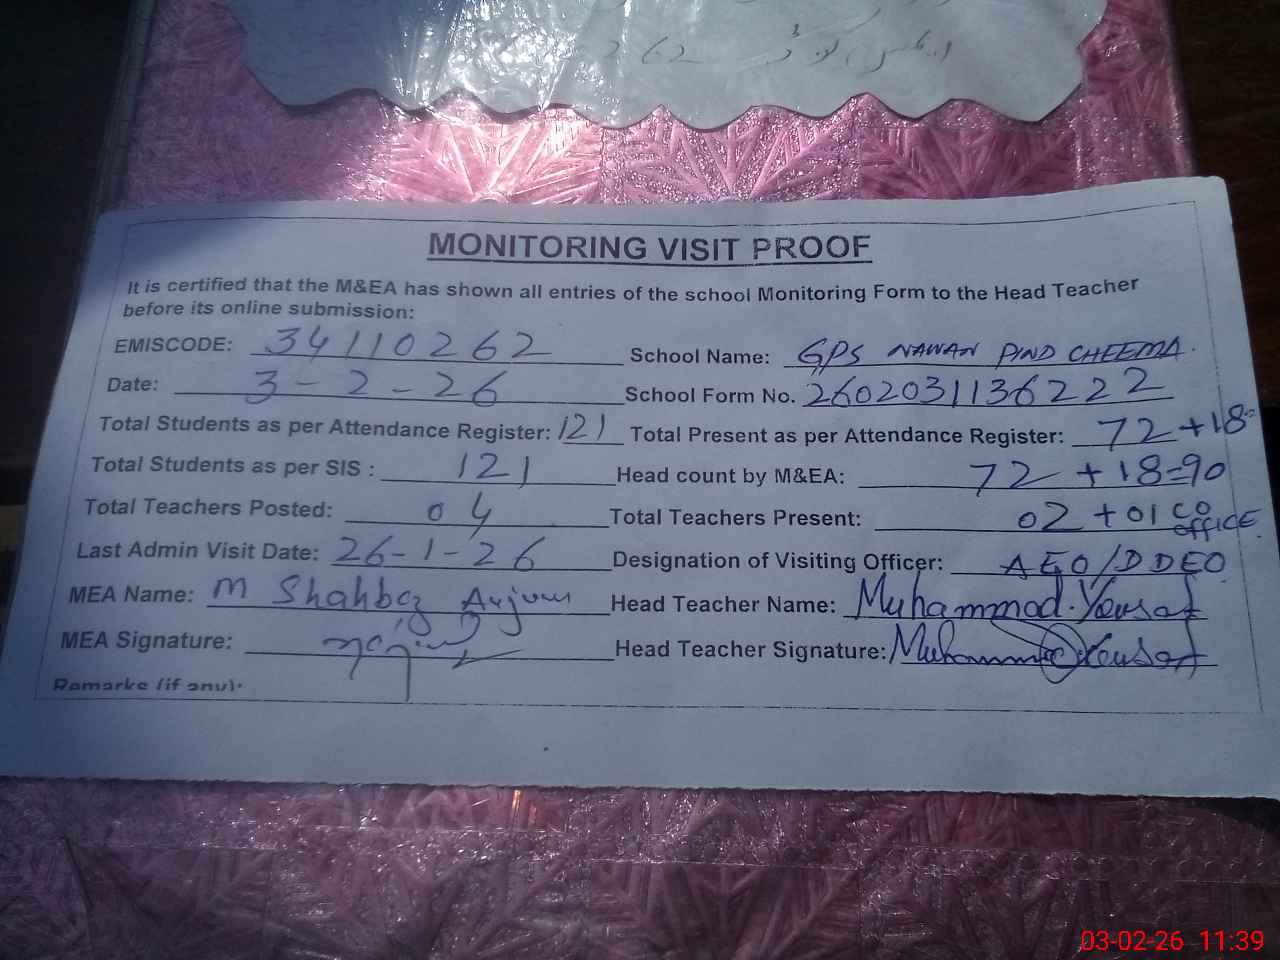 262
MONITORING VISIT PROOF
It is certified that the M&EA has shown all entries of the school Monitoring Form to the Head Teacher
before its online submission:
EMISCODE: 34110262 School Name: GPS NAWAN PIND CHEEMA.
Date: 3-2-26 School Form No. 2602031136222
Total Students as per Attendance Register: 121 Total Present as per Attendance Register: 72+18
Total Students as per SIS : 121 Head count by M&EA: 72+18=90
Total Teachers Posted: 04 Total Teachers Present: 02+01 CO OFFICE
Last Admin Visit Date: 26-1-26 Designation of Visiting Officer: AEO/DDEO
MEA Name: M Shahbaz Anjum Head Teacher Name: Muhammad. Yousaf
MEA Signature: Head Teacher Signature: Muhammad Yousaf
Remarks (if any):
03-02-26 11:39